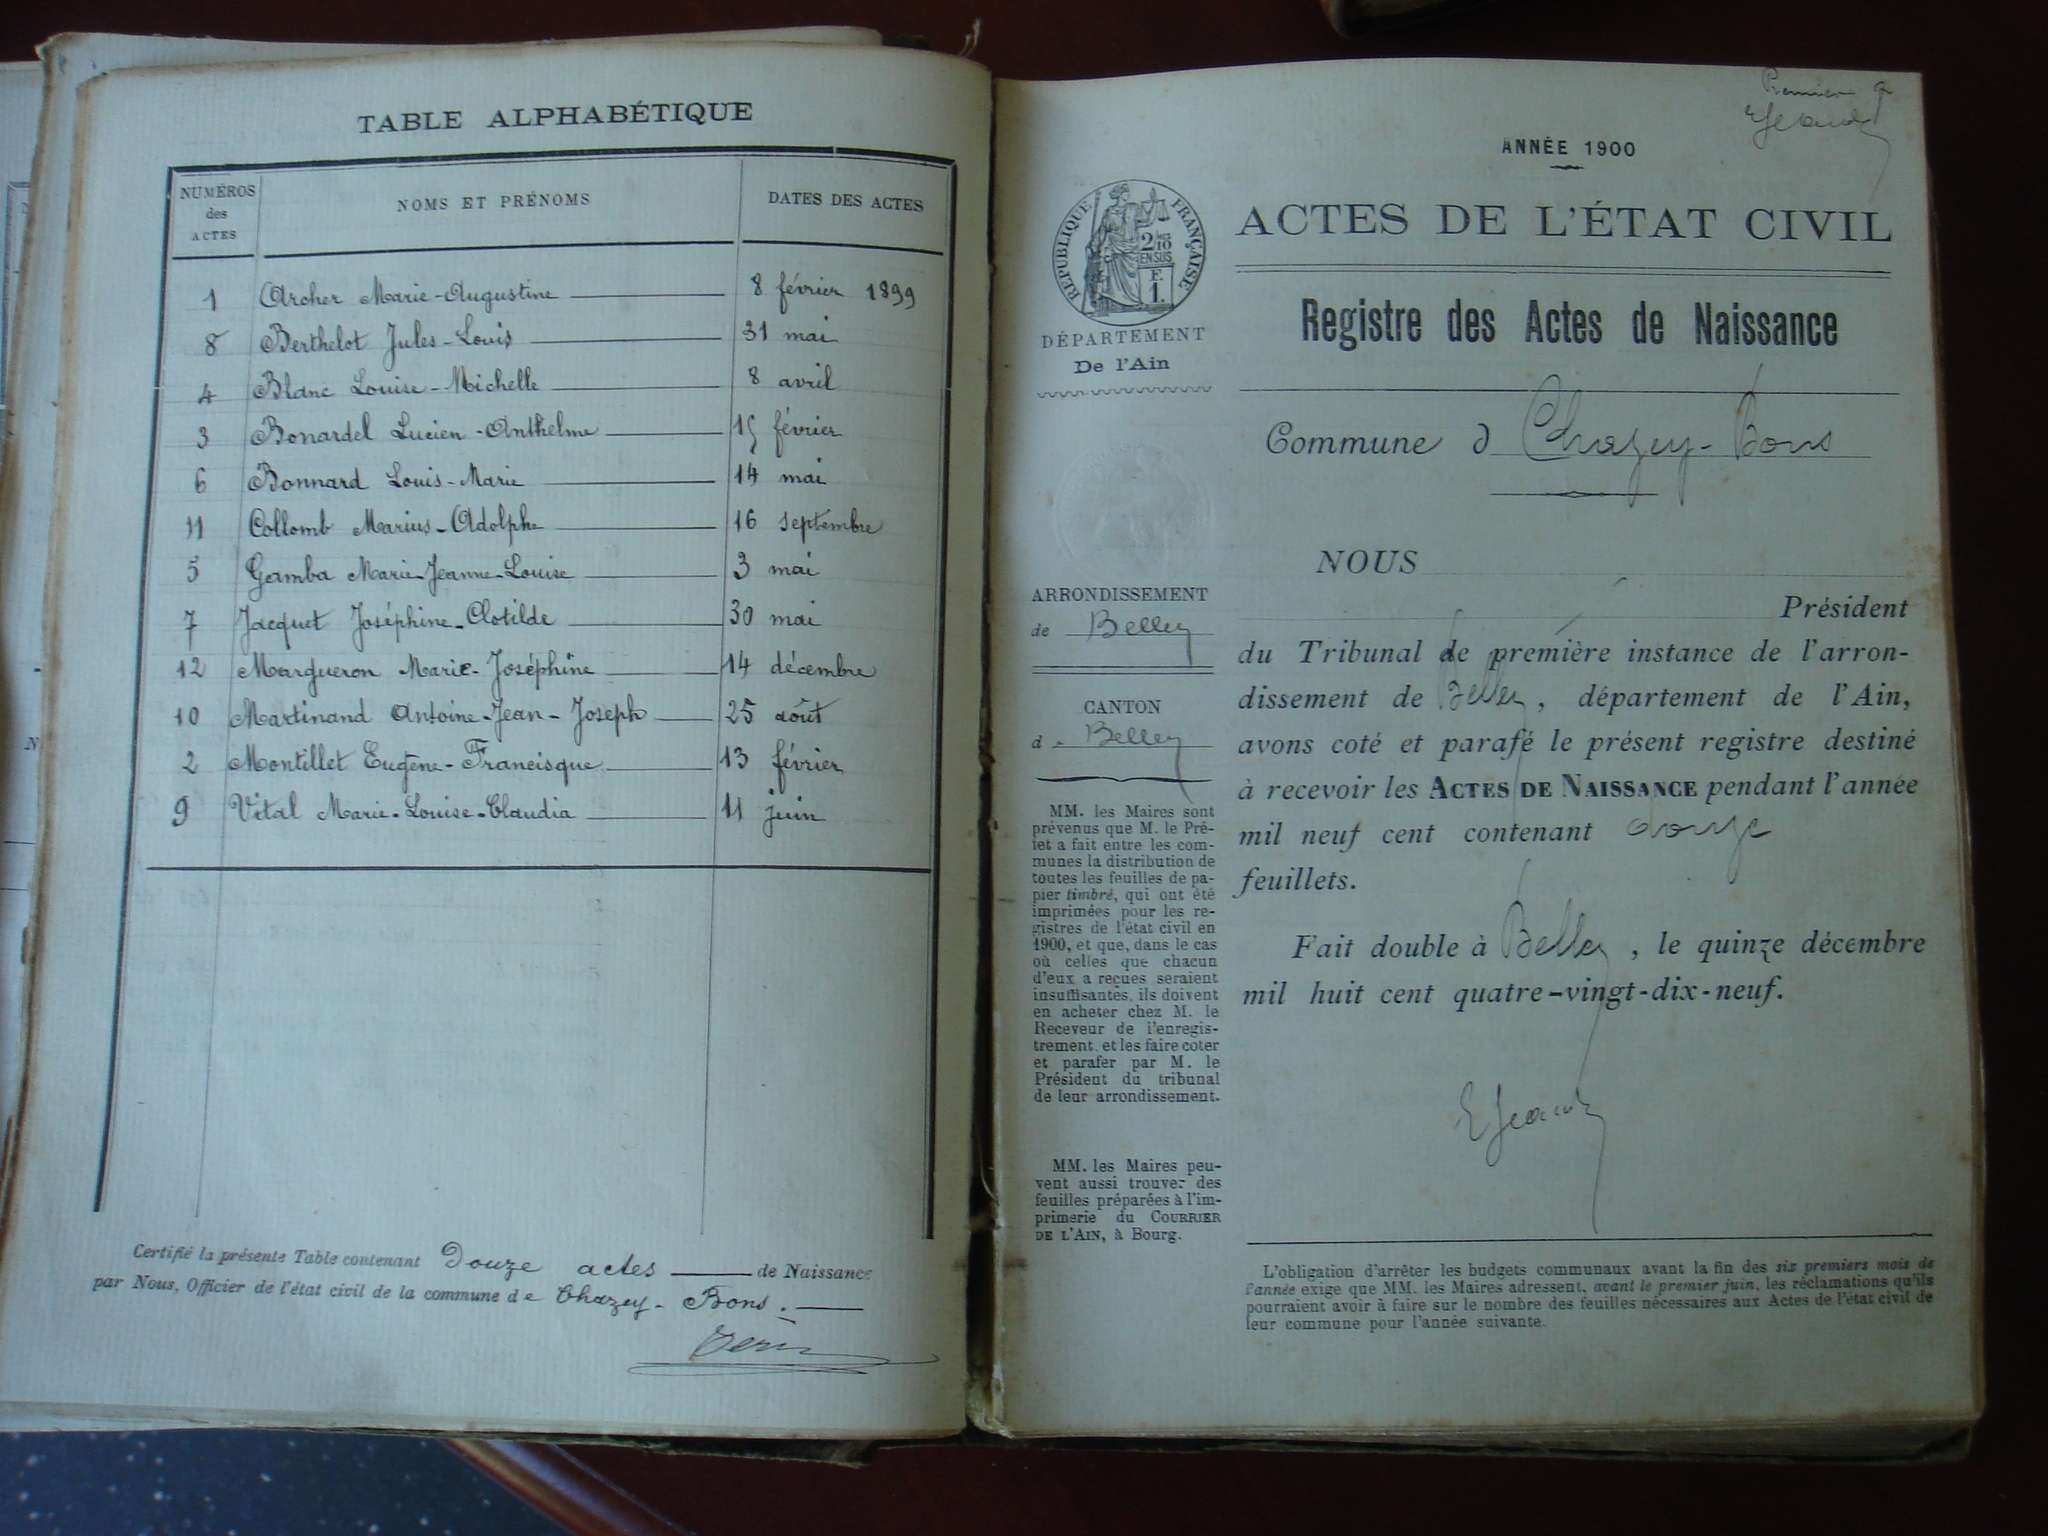 TABLE ALPHABÉTIQUE
NUMÉROS des ACTES NOMS ET PRÉNOMS DATES DES ACTES
1 Archer Marie-Augustine 8 février 1899
8 Berthelot Jules-Louis 31 mai
4 Blanc Louise-Michelle 8 avril
3 Bonardel Lucien-Anthelme 15 février
6 Bonnard Louis-Marie 14 mai
11 Collomb Marius-Adolphe 16 septembre
5 Gamba Marie-Jeanne-Louise 3 mai
7 Jacquet Joséphine-Clotilde 30 mai
12 Margueron Marie-Joséphine 14 décembre
10 Martinand Antoine-Jean-Joseph 25 août
2 Montillet Eugène-Francisque 13 février
9 Vital Marie-Louise-Claudia 11 juin
Certifié la présente Table contenant Douze actes de Naissance
par Nous, Officier de l'état civil de la commune de Chazey-Bons.
Premier
ANNÉE 1900
RÉPUBLIQUE FRANÇAISE
2/10 EN SUS
F. 1.
DÉPARTEMENT
De l'Ain
ACTES DE L'ÉTAT CIVIL
Registre des Actes de Naissance
Commune d Chazey-Bons
ARRONDISSEMENT
de Belley
CANTON
d Belley
MM. les Maires sont
prévenus que M. le Pré-
fet a fait entre les com-
munes la distribution de
toutes les feuilles de pa-
pier timbré, qui ont été
imprimées pour les re-
gistres de l'état civil en
1900, et que, dans le cas
où celles que chacun
d'eux a reçues seraient
insuffisantes, ils doivent
en acheter chez M. le
Receveur de l'enregis-
trement et les faire coter
et parafer par M. le
Président du tribunal
de leur arrondissement.
MM. les Maires peu-
vent aussi trouver des
feuilles préparées à l'im-
primerie du COURRIER
DE L'AIN, à Bourg.
NOUS
Président
du Tribunal de première instance de l'arron-
dissement de Belley, département de l'Ain,
avons coté et parafé le présent registre destiné
à recevoir les ACTES DE NAISSANCE pendant l'année
mil neuf cent contenant douze
feuillets.
Fait double à Belley, le quinze décembre
mil huit cent quatre-vingt-dix-neuf.
L'obligation d'arrêter les budgets communaux avant la fin des six premiers mois de
l'année exige que MM. les Maires adressent, avant le premier juin, les réclamations qu'ils
pourraient avoir à faire sur le nombre des feuilles nécessaires aux Actes de l'état civil de
leur commune pour l'année suivante.